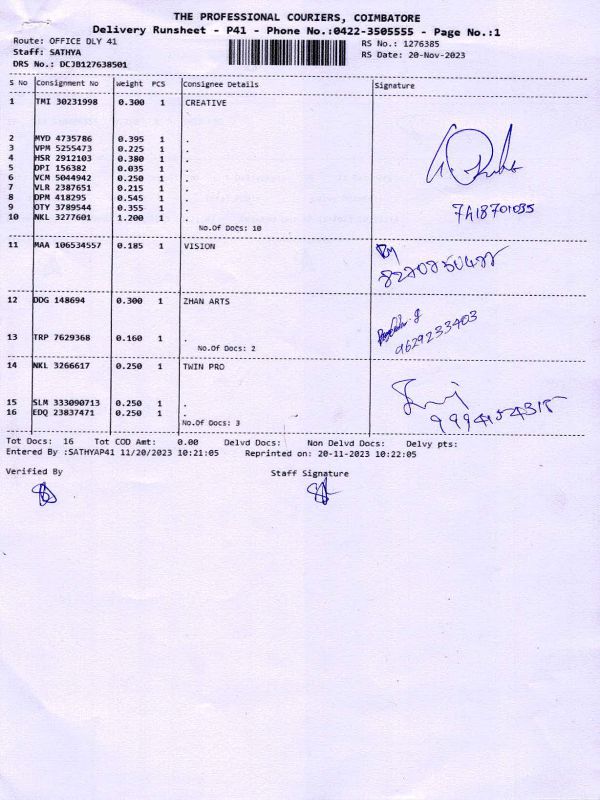 THE PROFESSIONAL COURIERS, COIMBATORE
Delivery Runsheet - P41 - Phone No.:0422-3505555 - Page No.:1
Route: OFFICE DLY 41 RS No.: 1276385
Staff: SATHYA RS Date: 20-Nov-2023
DRS No.: DCJB127638501
S No Consignment No Weight PCS Consignee Details Signature
1 TMI 30231998 0.300 1 CREATIVE
2 MYD 4735786 0.395 1 .
3 VPM 5255473 0.225 1 .
4 HSR 2912103 0.380 1 .
5 DPI 156382 0.035 1 .
6 VCM 5044942 0.250 1 .
7 VLR 2387651 0.215 1 .
8 DPM 418295 0.545 1 .
9 OTY 3789544 0.355 1 .
10 NKL 3277601 1.200 1 .
No.Of Docs: 10
11 MAA 106534557 0.185 1 VISION
12 DDG 148694 0.300 1 ZHAN ARTS
9629233403
13 TRP 7629368 0.160 1 .
No.Of Docs: 2
14 NKL 3266617 0.250 1 TWIN PRO
15 SLM 333090713 0.250 1 .
16 EDQ 23837471 0.250 1 .
No.Of Docs: 3
Tot Docs: 16 Tot COD Amt: 0.00 Delvd Docs: Non Delvd Docs: Delvy pts:
Entered By :SATHYAP41 11/20/2023 10:21:05 Reprinted on: 20-11-2023 10:22:05
Verified By Staff Signature